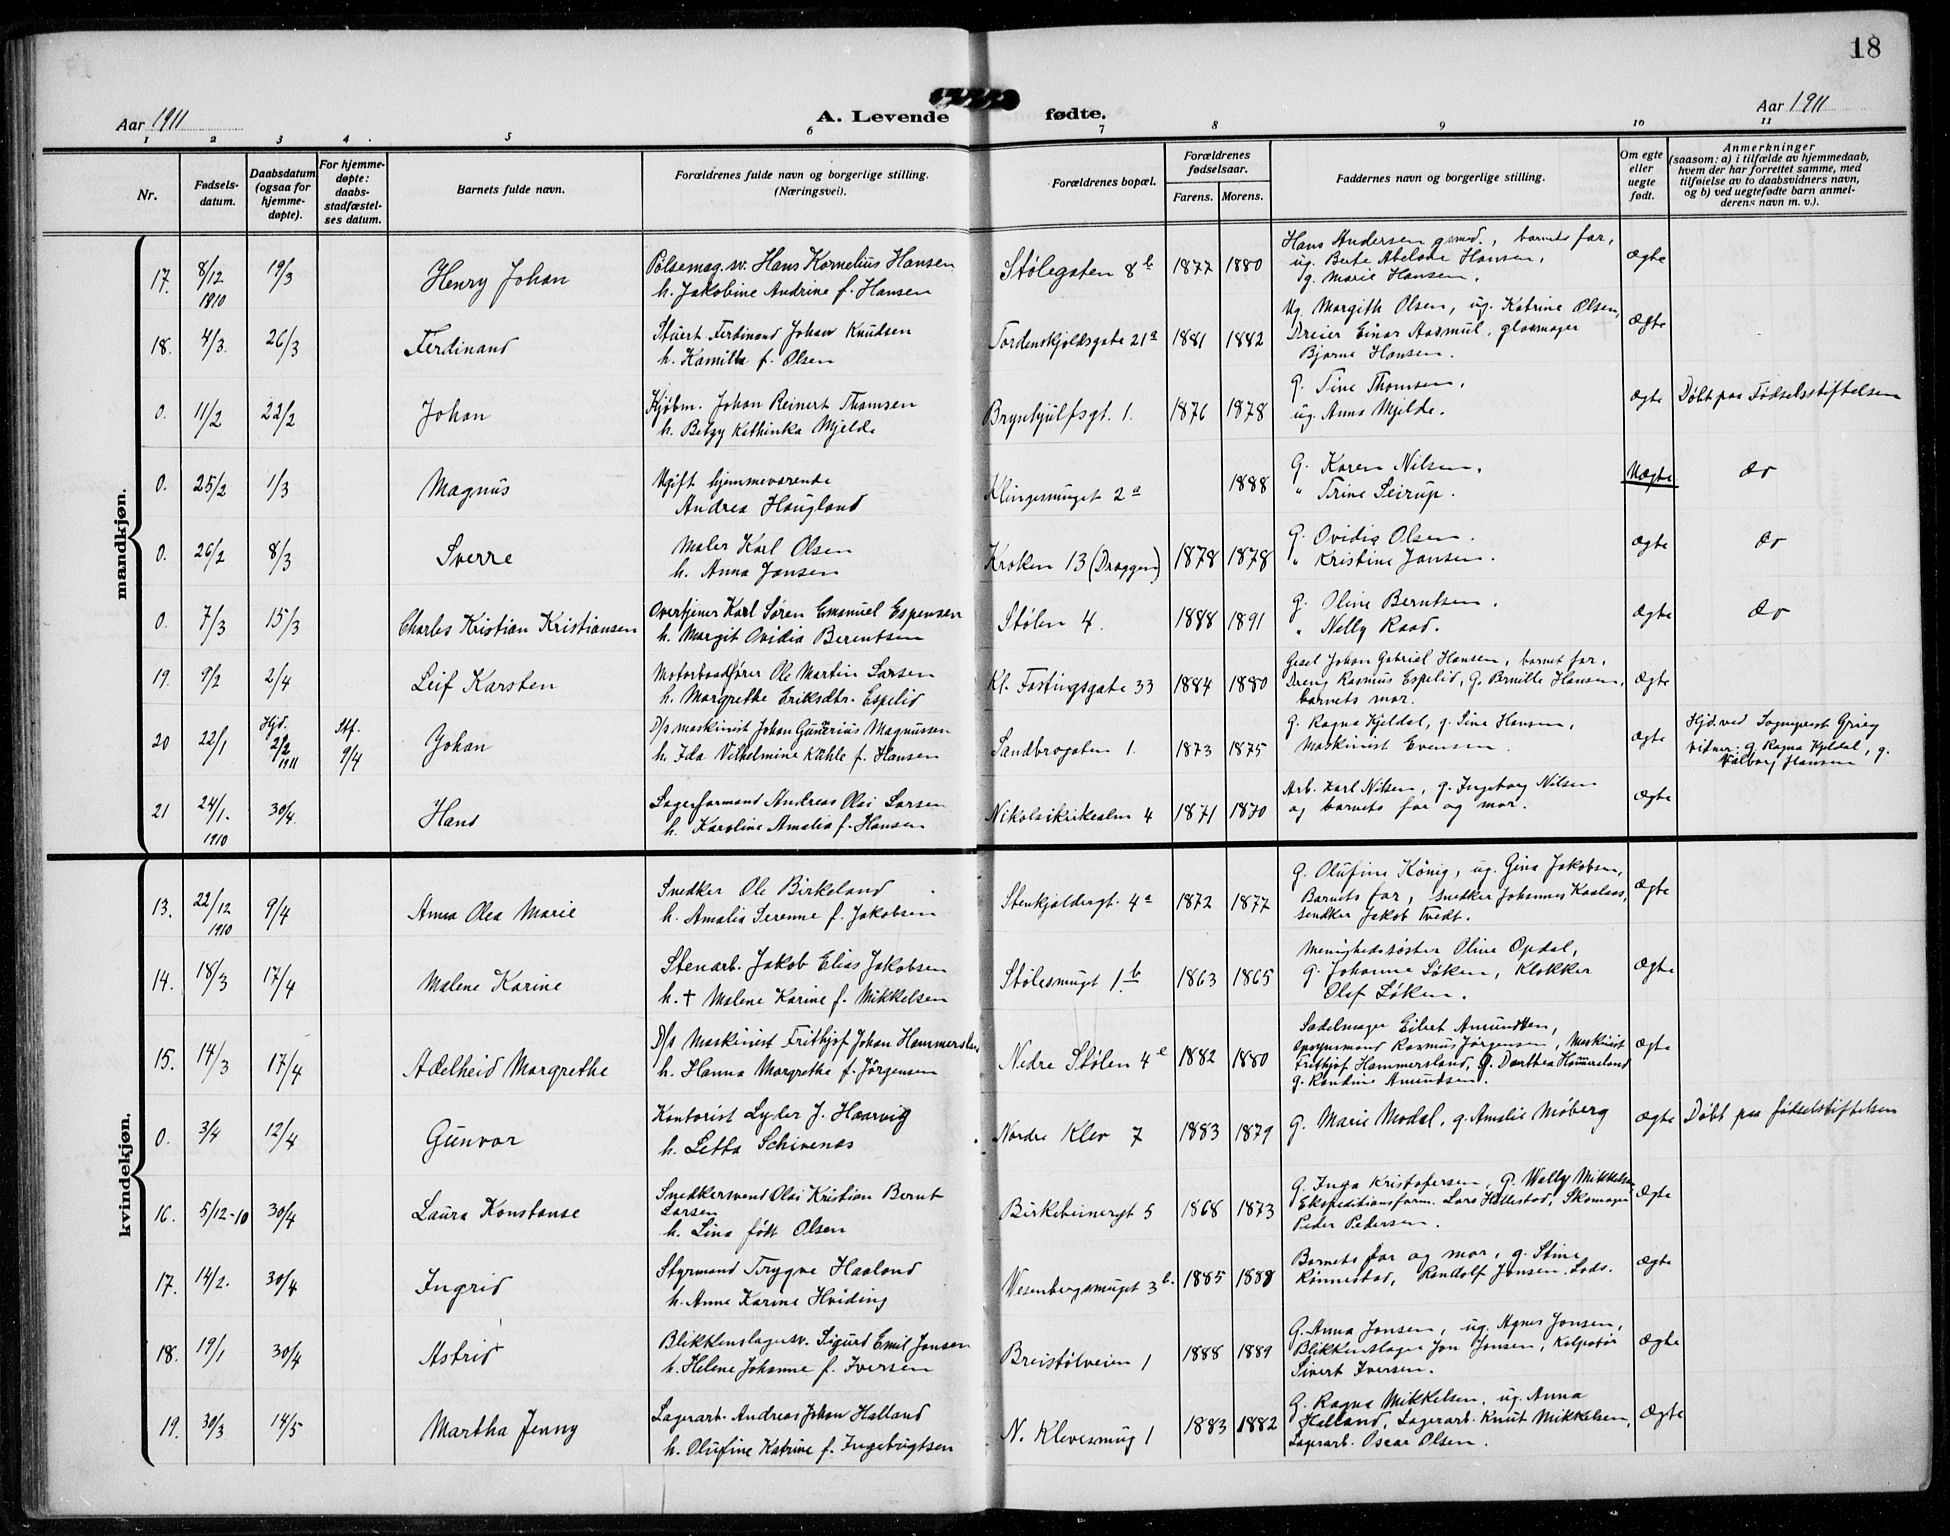 18
Aar 1911
A. Levende fødte.
Aar 1911
1 2 3 4 5 6 7 8 9 10 11
Nr.
Fødsels-
datum.
Daabsdatum
(ogsaa for
hjemme-
døpte).
For hjemme-
døpte:
daabs-
stadfæstel-
ses datum.
Barnets fulde navn.
Forældrenes fulde navn og borgerlige stilling.
(Næringsvei).
Forældrenes bopæl.
Forældrenes
fødselsaar.
Farens. Morens.
Faddernes navn og borgerlige stilling.
Om egte
eller
uegte
født.
Anmerkninger
(saasom: a) i tilfælde av hjemmedaab,
hvem der har forrettet samme, med
tilføielse av to daabsvidners navn,
og b) ved uegtefødte barn anmel-
derens navn m. v.).
mandkjøn.
17. 8/12 1910 19/3 Henry Johan
Pølsemag.sv. Hans Kornelius Hansen
h. Jakobine Andrine f. Hansen
Stølegaten 8b 1877 1880
Hans Andersen gsmed., barnets far,
ug. Berte Abelone Hansen,
g. Marie Hansen.
Ægte
18. 4/3. 26/3 Ferdinand
Stuert Ferdinand Johan Knudsen
h. Kamilla f. Olsen
Tordenskjoldsgate 21a 1881 1882
Ug. Margith Olsen, ug. Katrine Olsen,
Dreier Einar Aasmul, glasmager
Bjarne Hansen.
Ægte
0. 11/2 22/2 Johan
Kjøbm. Johan Reinert Thomsen
h. Betzy Kathinka Mjelde
Brynhjulfsgt. 1. 1876 1878
G. Tine Thomsen.
ug. Anna Mjelde.
Ægte Døbt paa Fødselsstiftelsen
0. 25/2 1/3 Magnus
Ugift hjemmeværende
Andrea Haugland
Klingesmuget 2a 1888
G. Karen Nilsen.
" Trine Seirup.
Uægte do
0. 26/2 8/3 Sverre
Maler Karl Olsen
h. Anna Jansen
Kroken 13 (Dræggen) 1878 1878
G. Ovidia Olsen.
" Kristine Jansen.
Ægte do
0. 7/3 15/3 Charles Kristian Kristiansen
Overtjener Karl Søren Emanuel Espensen
h. Margit Ovidia Berentsen
Stølen 4. 1888 1891
G. Oline Berntsen.
" Nelly Raad.
Ægte do
19. 9/2 2/4 Leif Karsten
Motorbaadfører Ole Martin Larsen
h. Margrethe Eriksdtr. Espelid
Kl. Fastingsgate 33 1884 1880
Gesel Johan Gabriel Hansen, barnet far,
Dreng Rasmus Espelid, G. Hansen,
barnets mor.
Ægte
20 22/1 Hjd. 2/2 1911 Stf. 9/4 Johan
D/s maskinist Johan Gunerius Magnussen
h. Ida Vilhelmine Kahle f. Hansen
Sandbrogaten 1. 1873 1875
G. Ragna Kjeldal, g. Sina Hansen,
Maskinist Evensen.
Ægte
Hjd. ved Sogneprest Grieg
vidner: g. Ragna Kjeldal, g.
Valborg Hansen
21 24/1. 1910 30/4. Hans
Lagerformand Andreas Olai Larsen
h. Karoline Amalia f. Hansen
Nikolaikirkealm 4 1871 1870
Arb. Karl Nilsen, g. Ingeborg Nilsen
og barnets far og mor.
Ægte
kvindekjøn.
13. 22/12 1910 9/4 Anna Olea Marie
Snedker Ole Birkeland
h. Amalia Serenne f. Jakobsen
Stenkjeldergt. 4a 1872 1877
G. Olufine König, ug. Gina Jakobsen,
Barnets far, snedker Johannes Kaalaas,
sendker Jakob Tvedt.
Ægte
14. 18/3 17/4 Malene Karine
Stenarb. Jakob Elias Jakobsen
h. + Malene Karine f. Mikkelsen
Stølesmuget 1b 1863 1865
Menighedssøster Oline Opdal,
G. Johanne Løken, Klokker
Olaf Løken.
Ægte
15. 14/3 17/4 Adelheid Margrethe
D/s Maskinist Frithjof Johan Hammersland
h. Hanna Margrethe f. Jörgensen
Nedre Stølen 4e 1882 1880
Sadelmager Eilert Amundsen,
Opsynsmand Rasmus Jörgensen, Maskinist
Frithjof Hammersland, G. Dorthea Hammersland
g. Randine Amundsen.
Ægte
0. 3/4 12/4 Gunvor
Kontorist Lyder J. Haarvig
h. Letta Schivenes
Nordre Klev 7 1883 1879
G. Marie Modal, g. Amalie Moberg
Ægte Døbt paa fødselstiftelsen
16. 5/12-10 30/4 Laura Konstanse
Snedkersvend Olai Kristian Bernt
Larsen
h. Lina født Olsen
Birkebeinergt 5 1868 1873
G. Inga Kristofersen, G. Wally Mikkelsen
Ekspeditionsform. Lars Hellestad, Skomager
Peder Pedersen.
Ægte
17. 14/2. 30/4 Ingrid
Styrmand Trygve Haaland
h. Anne Karine Hviding
Wesenbergsmuget 3b. 1885 1888
Barnets far og mor, g. Stine
Rönnestad, Randolf Jensen. Lods.
Ægte
18. 19/1 30/4 Astrid
Blikkenslagersv. Sigurd Emil Jensen
h. Helene Johanne f. Iversen
Breistølveien 1 1888 1889
G. Anna Jensen, ug. Agnes Jensen,
Blikkenslager Jon Jensen, Kolpotør
Sivert Iversen.
Ægte
19. 30/3 14/5 Martha Jenny
Lagerarb. Andreas Johan Halland
h. Olufine Katrine f. Ingebrigtsen
N. Klevesmug 1 1883 1882
G. Ragna Mikkelsen, ug. Anna
Halland, Lagerarb. Knut Mikkelsen,
Lagerarb. Oscar Olsen.
Ægte